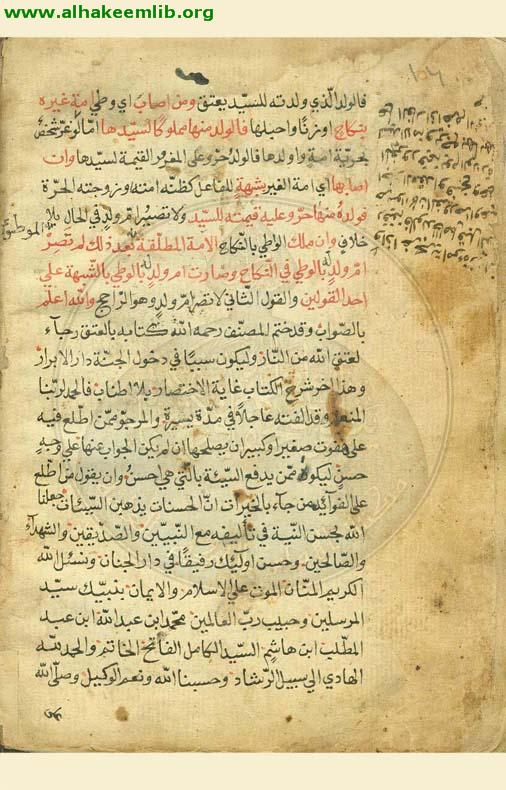 www.alhakeemlib.org
فالولد الذي ولدته للسيد يعتق ومن اصاب اي وطي امة غيره
بنكاح او زنا واحبلها فالولد منها مملوكا لسيدها اما لو غر شخص
بحرية امة واولدها فالولد حر وعلى المغرور القيمة لسيدها وان
اصابها اي امة الغير بشبهة للفاعل كظنه امته او زوجته الحرة
فولده منها حر وعليه قيمته للسيد ولا تصير ام ولد في الحال بلا
خلاف وان ملك الوطي بالنكاح الامة المطلقة بعد ذلك لم تصر
ام ولد له بالوطي في النكاح وصارت ام ولد له بالوطي بالشبهة على
احد القولين والقول الثاني لا تصر ام ولد وهو الراجح والله اعلم
بالصواب وقد ختم المصنف رحمه الله كتابه بالعتق رجاء
لعتق الله من النار وليكون سببا في دخول الجنة دار الابرار
وهذا اخر شرح الكتاب غاية الاختصار بلا اطناب فالحمد لربنا
المنعم وقد الفته عاجلا في مدة يسيرة والمرجو ممن اطلع فيه
على هفوت صغيرا وكبيرا ان يصلحها ان لم يكن الجواب عنها على وجه
حسن ليكون ممن يدفع السيئة بالتي هي احسن وان يقول من اطلع
على الفوائد من جاء بالخيرات ان الحسنات يذهبن السيئات جعلنا
الله بحسن النية في تاليفه مع النبيين والصديقين والشهداء
والصالحين وحسن اولئك رفيقا في دار الجنان ونسئل الله
الكريم المنان الموت على الاسلام والايمان بنبيك سيد
المرسلين وحبيب رب العالمين محمد ابن عبد الله ابن عبد
المطلب ابن هاشم السيد الكامل الفاتح الخاتم والحمد لله
الهادي الى سبيل الرشاد وحسبنا الله ونعم الوكيل وصلى الله